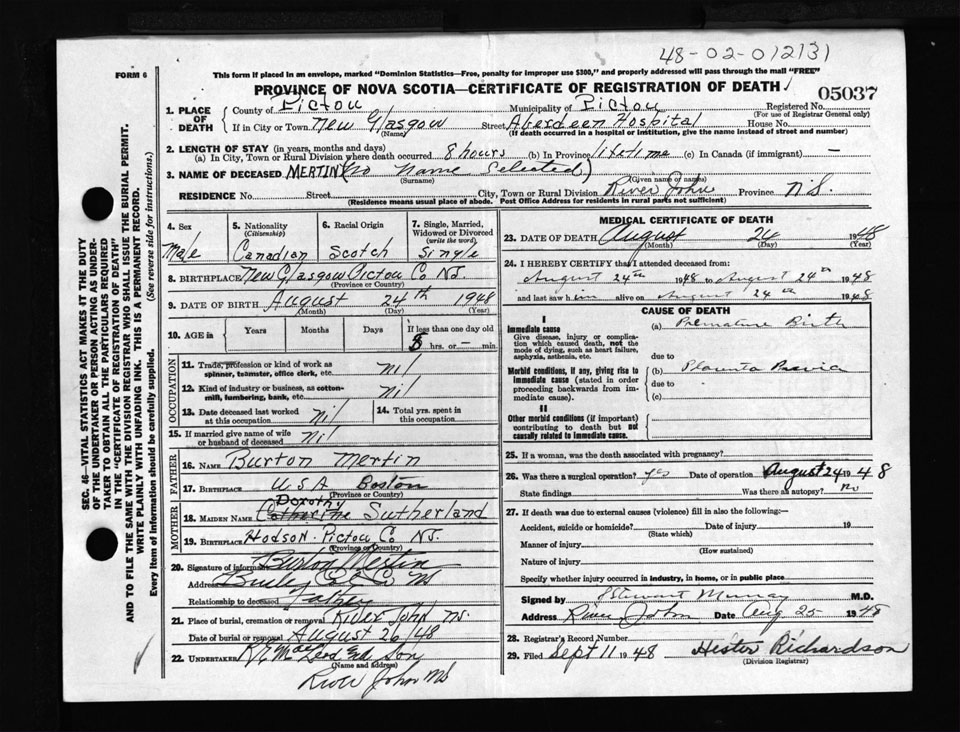 48-02-012131
FORM 6
This form if placed in an envelope, marked "Dominion Statistics—Free, penalty for improper use $300," and properly addressed will pass through the mail "FREE"
PROVINCE OF NOVA SCOTIA—CERTIFICATE OF REGISTRATION OF DEATH
05037
1. PLACE OF DEATH
County of Pictou Municipality of Pictou Registered No.
(For use of Registrar General only)
If in City or Town New Glasgow Street Aberdeen Hospital House No.
(Name) (If death occurred in a hospital or institution, give the name instead of street and number)
2. LENGTH OF STAY (in years, months and days)
(a) In City, Town or Rural Division where death occurred 8 hours (b) In Province lifetime (c) In Canada (if immigrant) —
3. NAME OF DECEASED MERTIN (no name Selected)
(Surname) (Given name or names)
RESIDENCE No. Street City, Town or Rural Division River John Province N.S.
(Residence means usual place of abode. Post Office Address for residents in rural parts not sufficient)
4. Sex
Male
5. Nationality
(Citizenship)
Canadian
6. Racial Origin
Scotch
7. Single, Married, Widowed or Divorced
(write the word)
Single
8. BIRTHPLACE New Glasgow Pictou Co NS.
(Province or Country)
9. DATE OF BIRTH August 24th 1948
(Month) (Day) (Year)
10. AGE is Years Months Days If less than one day old
8 hrs. or — min.
OCCUPATION
11. Trade, profession or kind of work as spinner, teamster, office clerk, etc. nil
12. Kind of industry or business, as cotton-mill, lumbering, bank, etc. nil
13. Date deceased last worked at this occupation nil
14. Total yrs. spent in this occupation
15. If married give name of wife or husband of deceased nil
FATHER
16. NAME Burton Mertin
17. BIRTHPLACE USA Boston
(Province or Country)
MOTHER
Dorothy
18. MAIDEN NAME Catherine Sutherland
19. BIRTHPLACE Hodson Pictou Co NS.
(Province or Country)
20. Signature of informant Burton Mertin
Address Col. Co NS
Relationship to deceased Father
21. Place of burial, cremation or removal River John NS.
Date of burial or removal August 26/48
22. UNDERTAKER MacLeod and Son
(Name and address)
River John NS
MEDICAL CERTIFICATE OF DEATH
23. DATE OF DEATH August 24 1948
(Month) (Day) (Year)
24. I HEREBY CERTIFY that I attended deceased from:
August 24th 1948 to August 24th 1948
and last saw him alive on August 24th 1948
CAUSE OF DEATH
I
Immediate cause
Give disease, injury or complication which caused death, not the mode of dying, such as heart failure, asphyxia, asthenia, etc.
(a) Premature Birth
due to
Morbid conditions, if any, giving rise to immediate cause (stated in order proceeding backwards from immediate cause).
(b) Placenta Previa
due to
(c)
II
Other morbid conditions (if important) contributing to death but not causally related to immediate cause.
25. If a woman, was the death associated with pregnancy?
26. Was there a surgical operation? yes Date of operation August 24 1948
State findings Was there an autopsy? no
27. If death was due to external causes (violence) fill in also the following:—
Accident, suicide or homicide? Date of injury 19
(State which)
Manner of injury
(How sustained)
Nature of injury
Specify whether injury occurred in industry, in home, or in public place
Signed by Stewart Murray M.D.
Address River John Date Aug 25 1948
28. Registrar's Record Number
29. Filed Sept 11 1948 Hester Richardson
(Division Registrar)
SEC. 46—VITAL STATISTICS ACT MAKES IT THE DUTY OF THE UNDERTAKER OR PERSON ACTING AS UNDERTAKER TO OBTAIN ALL THE PARTICULARS REQUIRED IN THE "CERTIFICATE OF REGISTRATION OF DEATH" AND TO FILE THE SAME WITH THE DIVISION REGISTRAR WHO SHALL ISSUE THE BURIAL PERMIT.
WRITE PLAINLY WITH UNFADING INK. THIS IS A PERMANENT RECORD.
Every item of information should be carefully supplied. (See reverse side for instructions.)